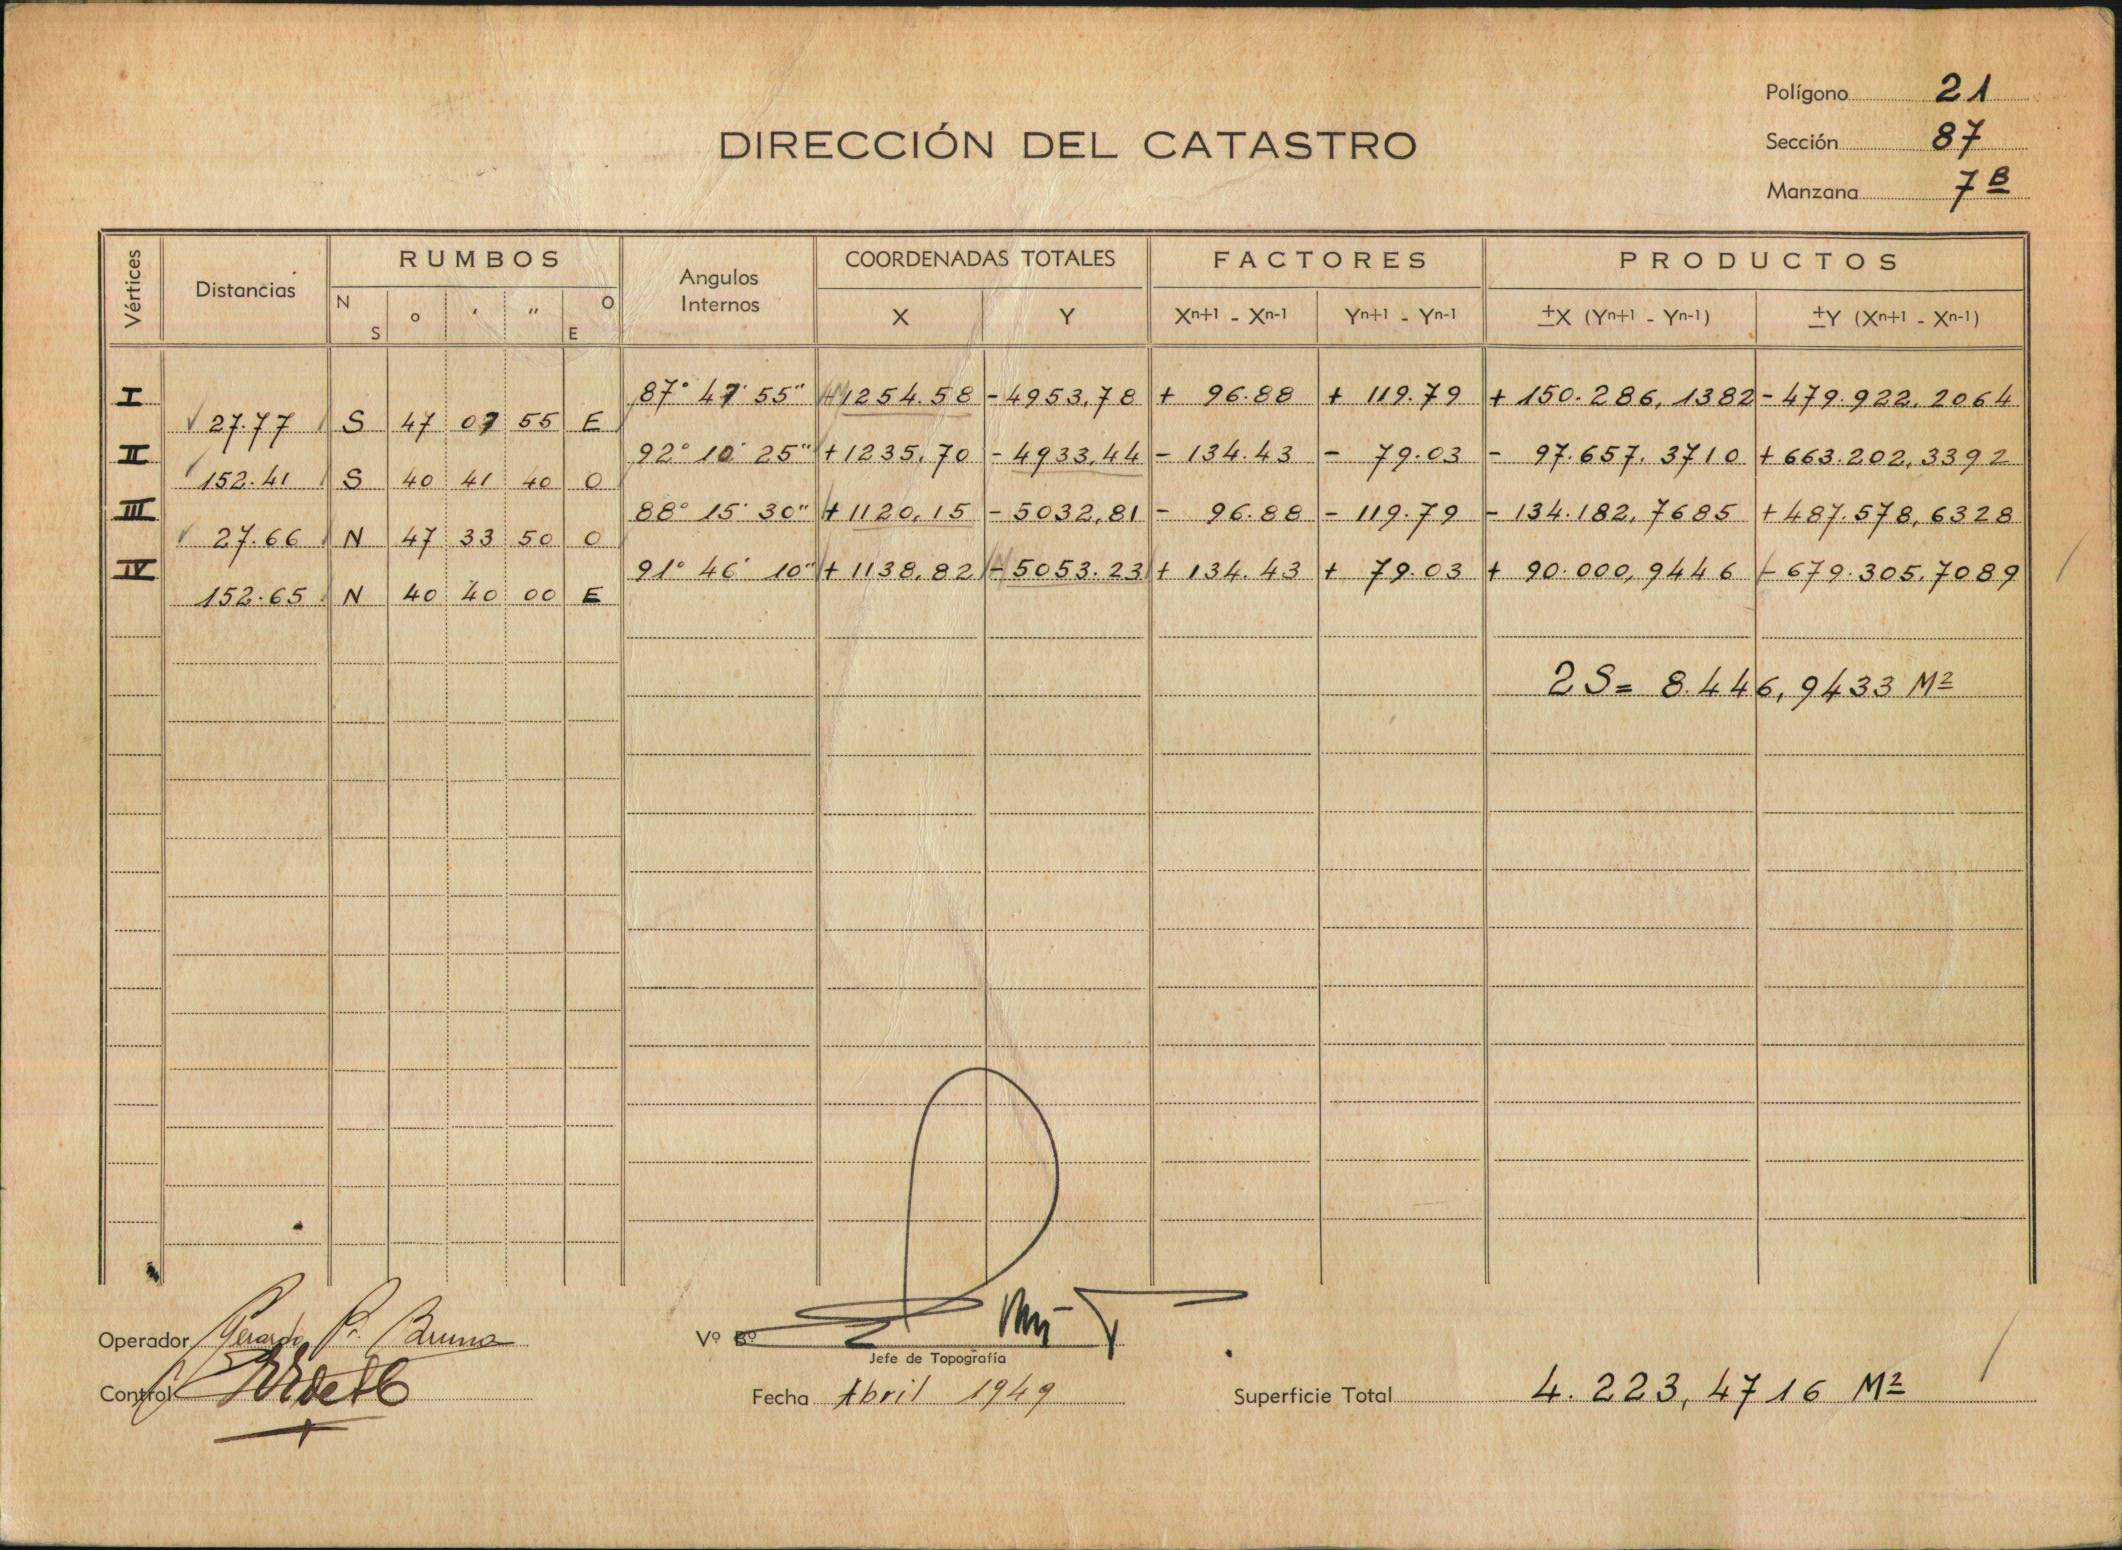 Polígono 21
DIRECCIÓN DEL CATASTRO
Sección 87
Manzana 7 B
Vértices Distancias RUMBOS Angulos Internos COORDENADAS TOTALES FACTORES PRODUCTOS
N S ° ' " O E X Y Xn+1 - Xn-1 Yn+1 - Yn-1 ±X (Yn+1 - Yn-1) ±Y (Xn+1 - Xn-1)
I 87° 47' 55" 1254.58 -4953,78 + 96.88 + 119.79 + 150.286,1382 - 479.922,2064
27.77 S 47 07 55 E
II 92° 10' 25" +1235,70 - 4933,44 - 134.43 - 79.03 - 97.657,3710 + 663.202,3392
152.41 S 40 41 40 O
III 88° 15' 30" +1120,15 - 5032,81 - 96.88 - 119.79 - 134.182,7685 + 487.578,6328
27.66 N 47 33 50 O
IV 91° 46' 10" + 1138,82 - 5053.23 + 134.43 + 79.03 + 90.000,9446 - 679.305,7089
152.65 N 40 40 00 E
2 S = 8.446,9433 M2
Operador Gerardo P. Bruno
Vº Bº
Jefe de Topografía
Control
Fecha Abril 1949
Superficie Total 4.223,4716 M2